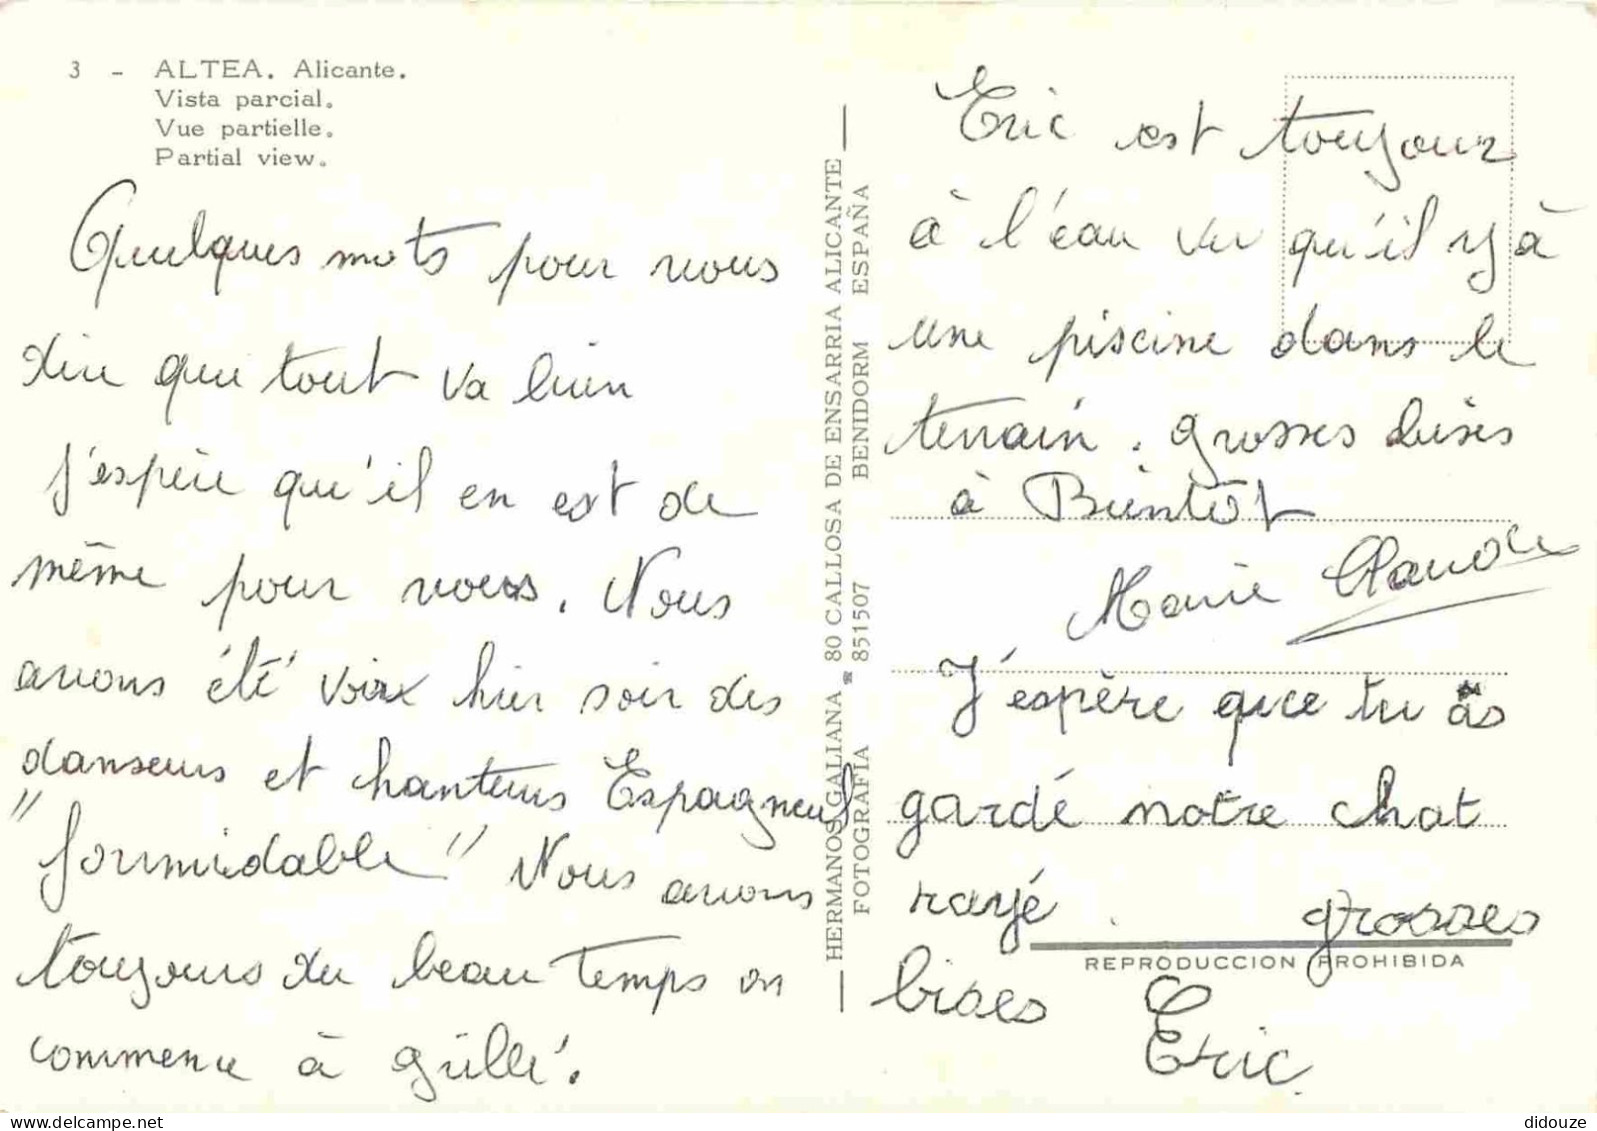 3 - ALTEA. Alicante.
Vista parcial.
Vue partielle.
Partial view.
Quelques mots pour vous
dire que tout va bien
j'espère qu'il en est de
même pour vous. Nous
avons été voir hier soir des
danseurs et chanteurs Espagneul
"formidable" Nous avons
toujours du beau temps on
commence à grillé.
HERMANOS GALIANA ☎ 80 CALLOSA DE ENSARRIA ALICANTE
FOTOGRAFIA 851507 BENIDORM ESPAÑA
Eric est toujour
à l'eau vu qu'il y à
une piscine dans le
terrain. grosses bises
à Bientôt
Marie Claude
J'espère que tu as
gardé notre chat
rayé. grosses
REPRODUCCION PROHIBIDA
bises Eric
didouze